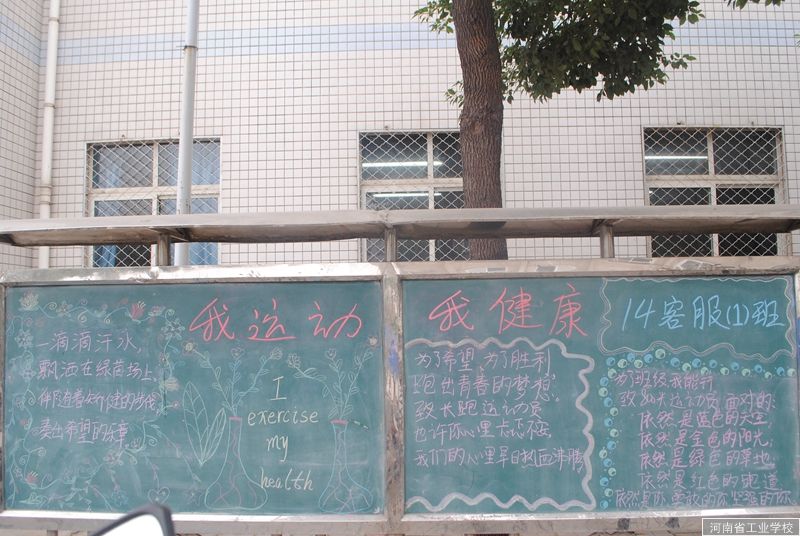 我运动
一滴滴汗水
飘洒在绿茵场上
伴随着矫健的步伐
奏出希望的乐章
I
exercise
my
health
我健康
为了希望,为了胜利
跑出青春的梦想
致长跑运动员
也许你心里忐忑不安
我们的心里早日热血沸腾
14客服(1)班
为班级我能行
致800米运动员 面对的
依然是蓝色的天空
依然是金色的阳光
依然是绿色的草地
依然是红色的跑道
依然是
河南省工业学校